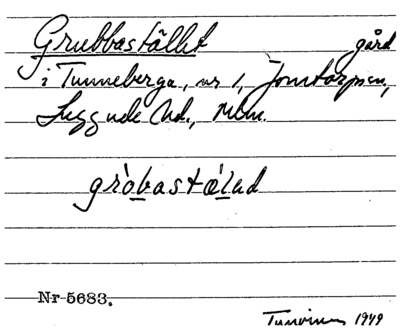 Grubbastället gård
i Tunneberga, nr 1, Jonstorpsn,
Luggude hd., Mlm.
gròbastælad
Nr 5683.
1949